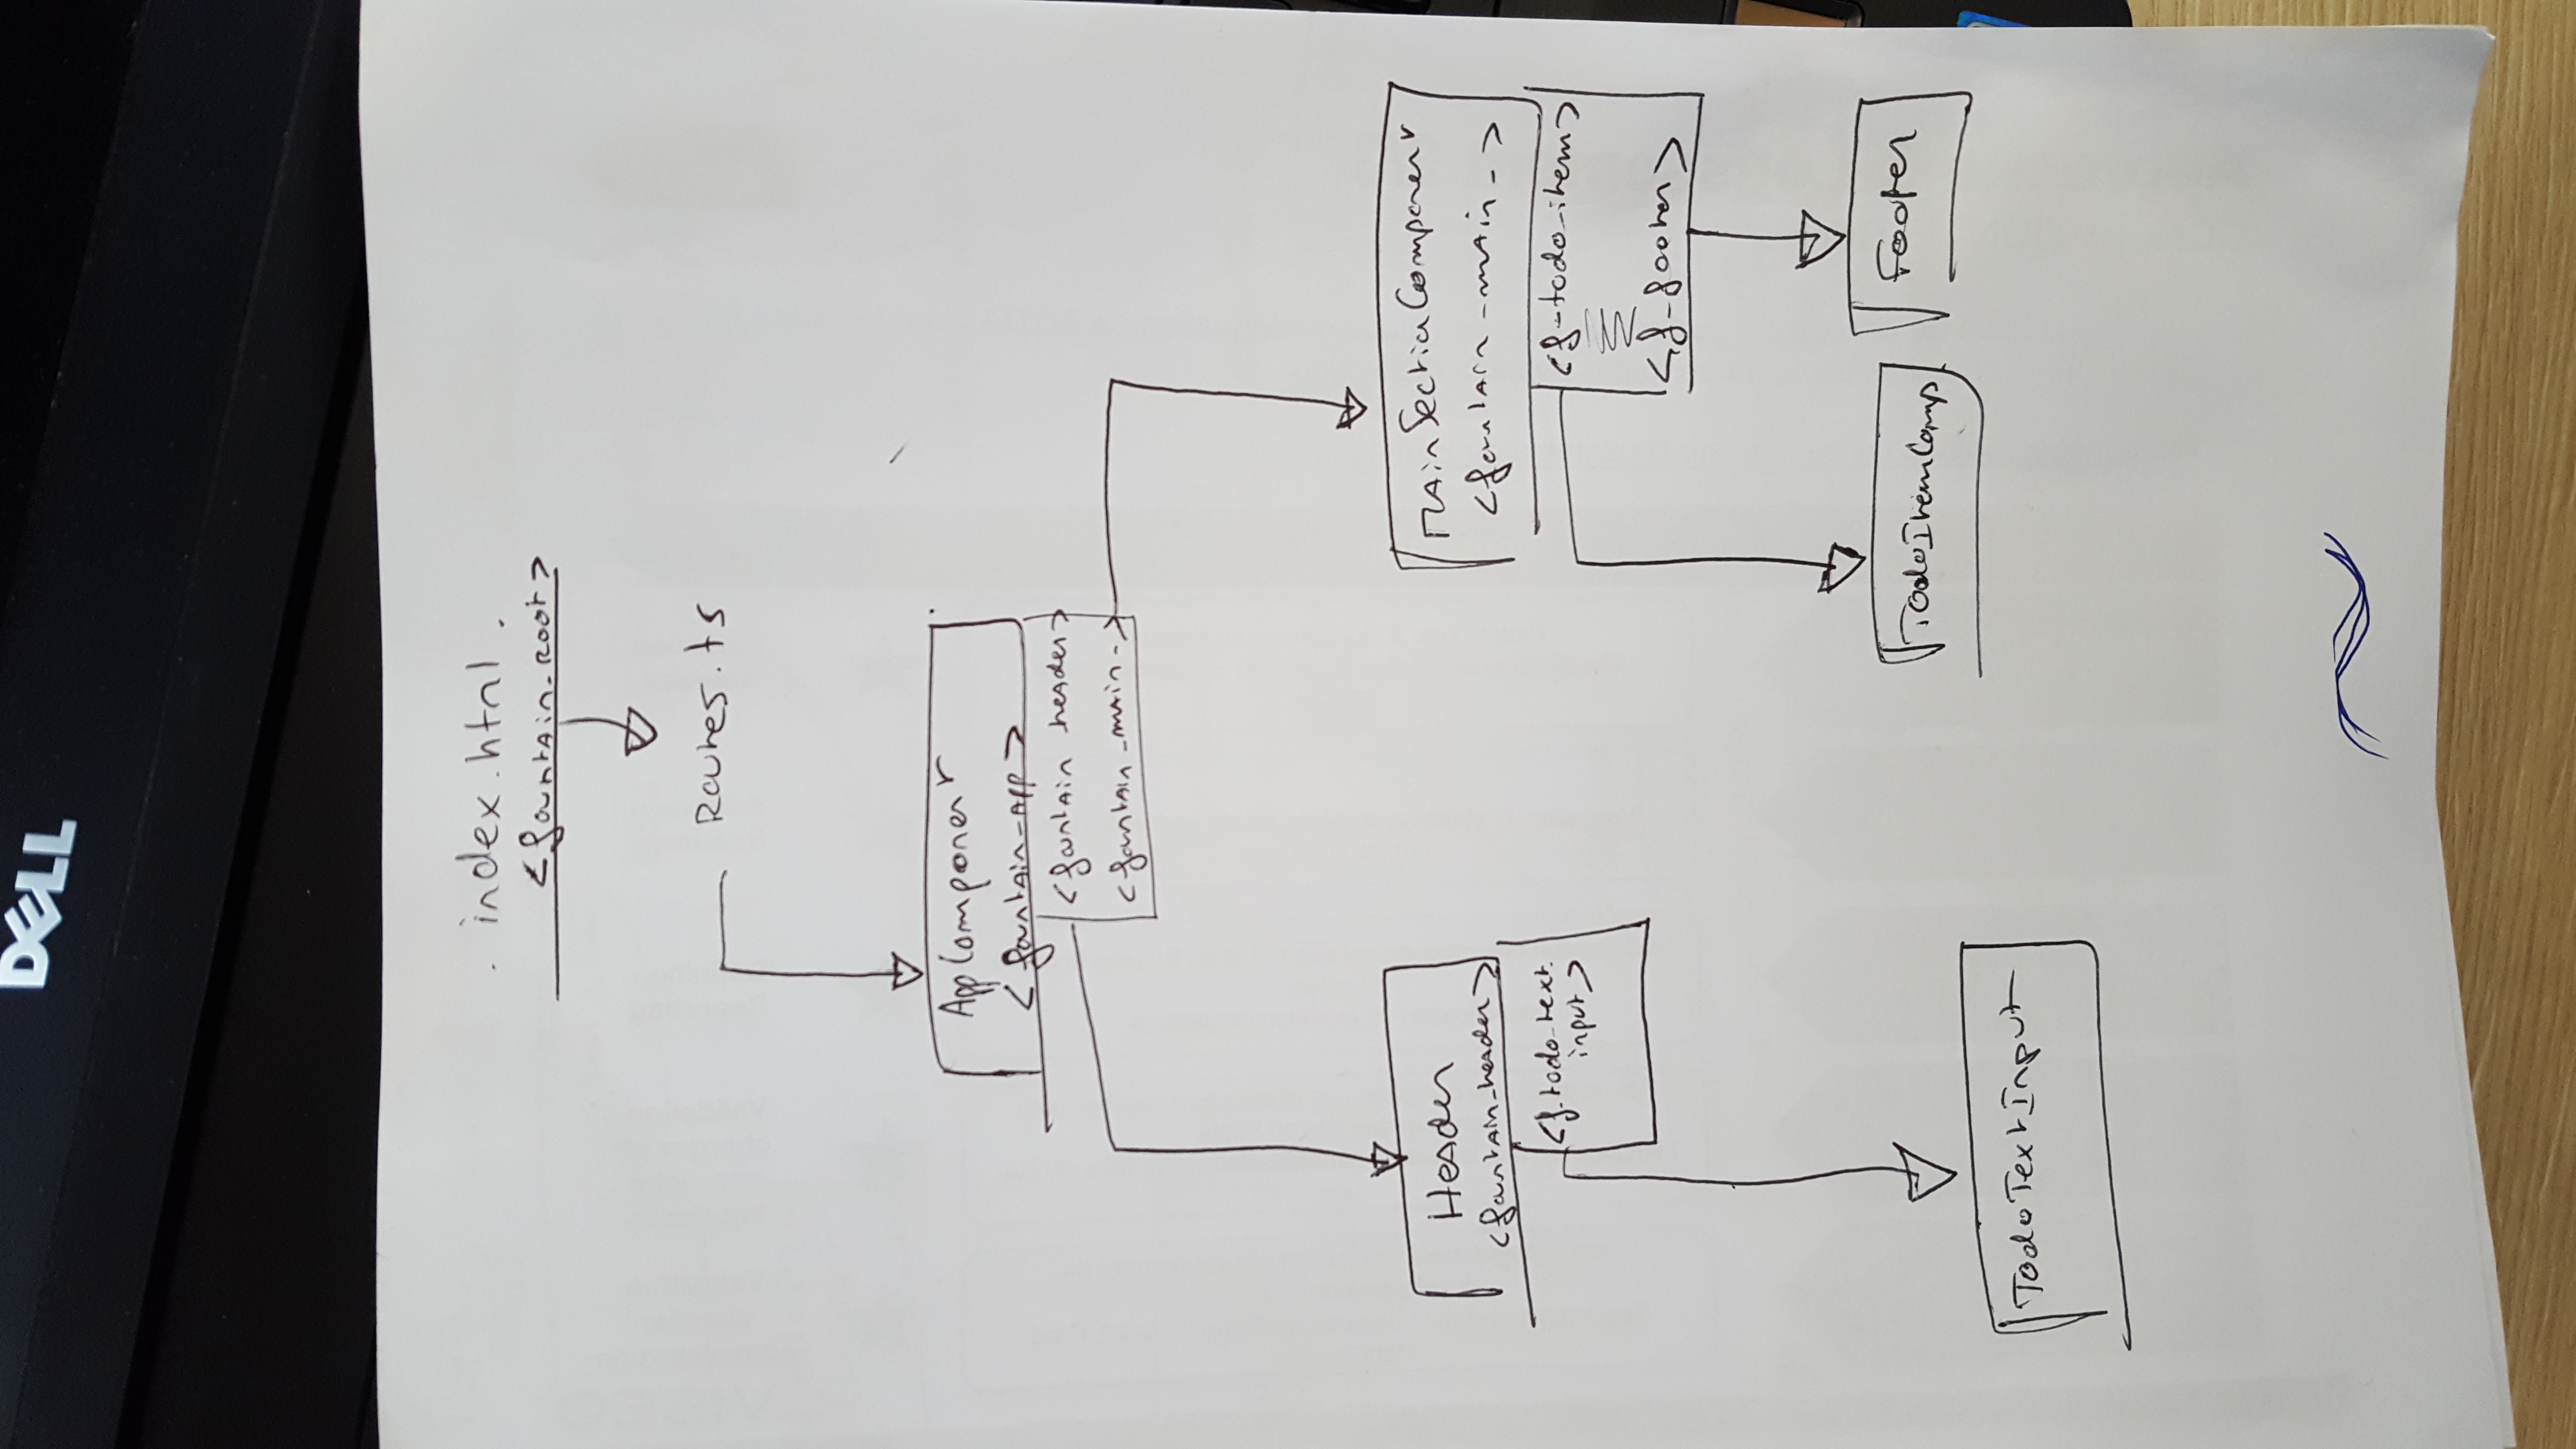 DELL
. index.html .
<fountain-Root>
Routes.ts
AppComponent
<fountain-App>
<fountain header>
<fountain-main->
Header
<fountain-header>
<f.todo-text.
input>
MainSectionComponent
<fountain-main->
<f-todo-item>
<f-footer>
TodoItemComp
Footer
TodoTextInput